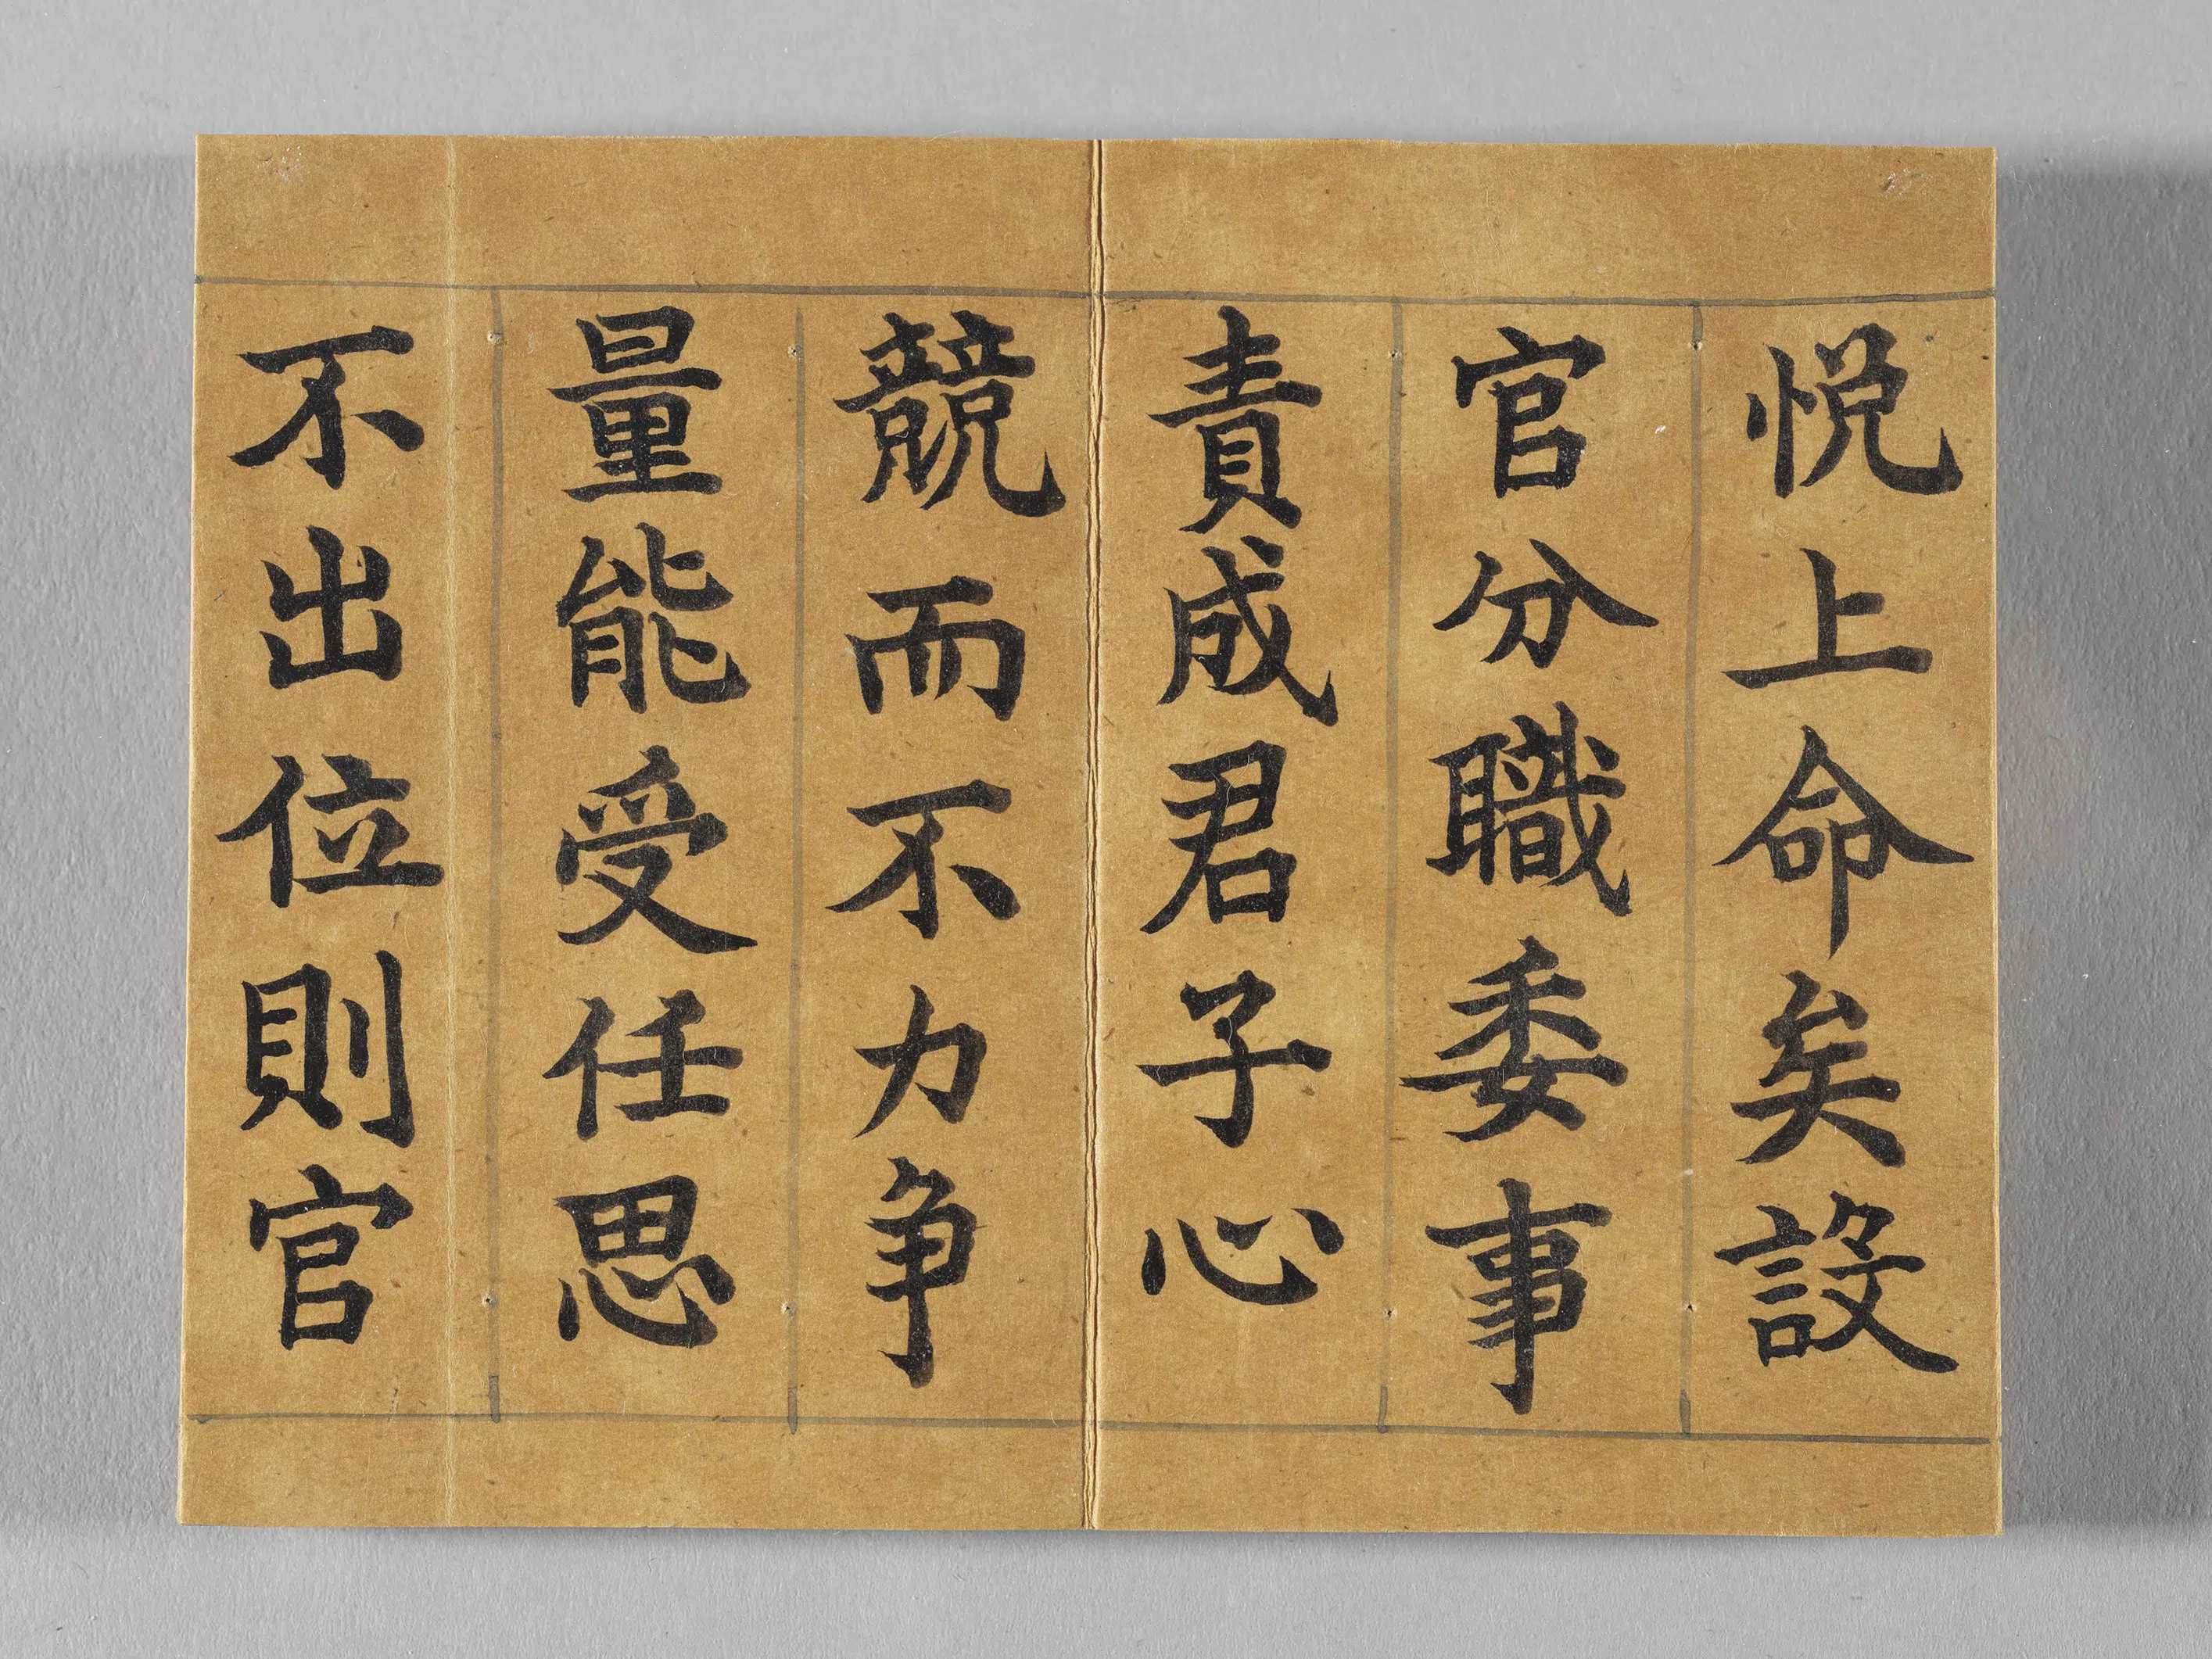 悦上命矣設
官分職委事
責成君子心
競而不力争
量能受任思
不出位則官